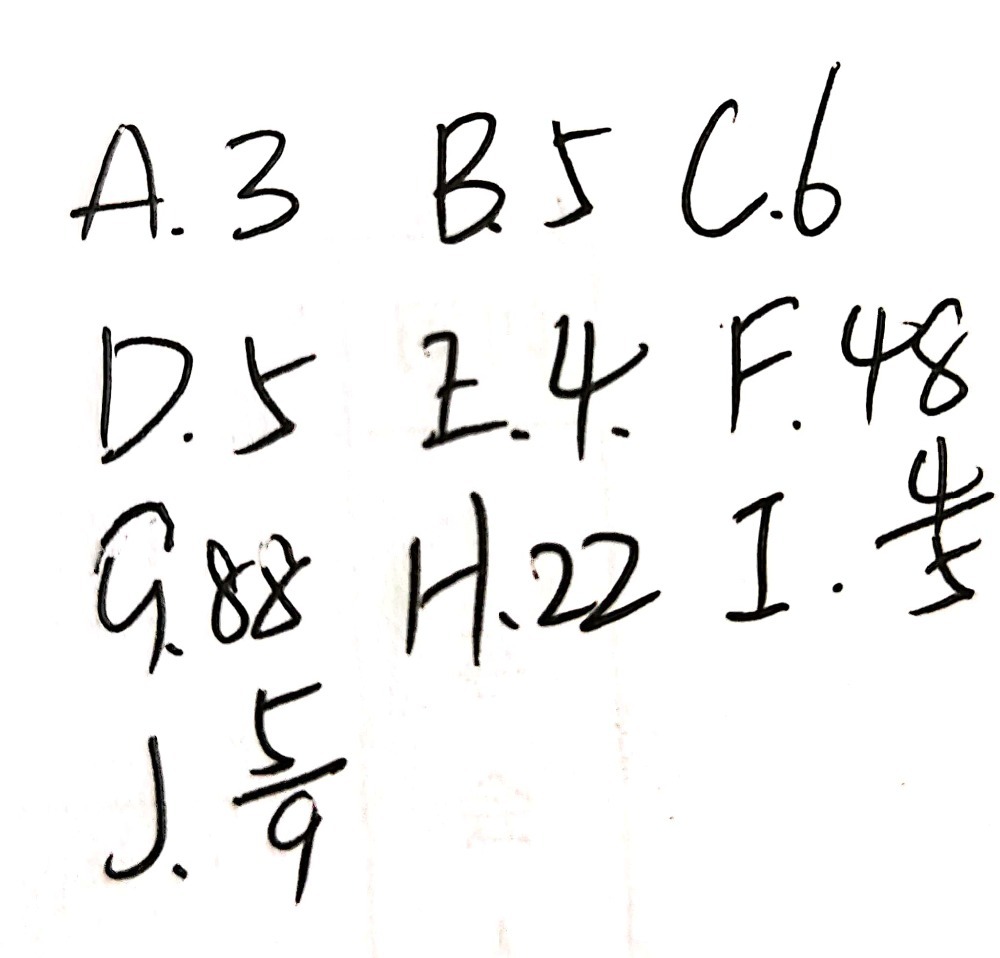 A. 3 B. 5 C. 6
D. 5 E. 4. F. 48
G. 88 H. 22 I. 4/5
J. 5/9